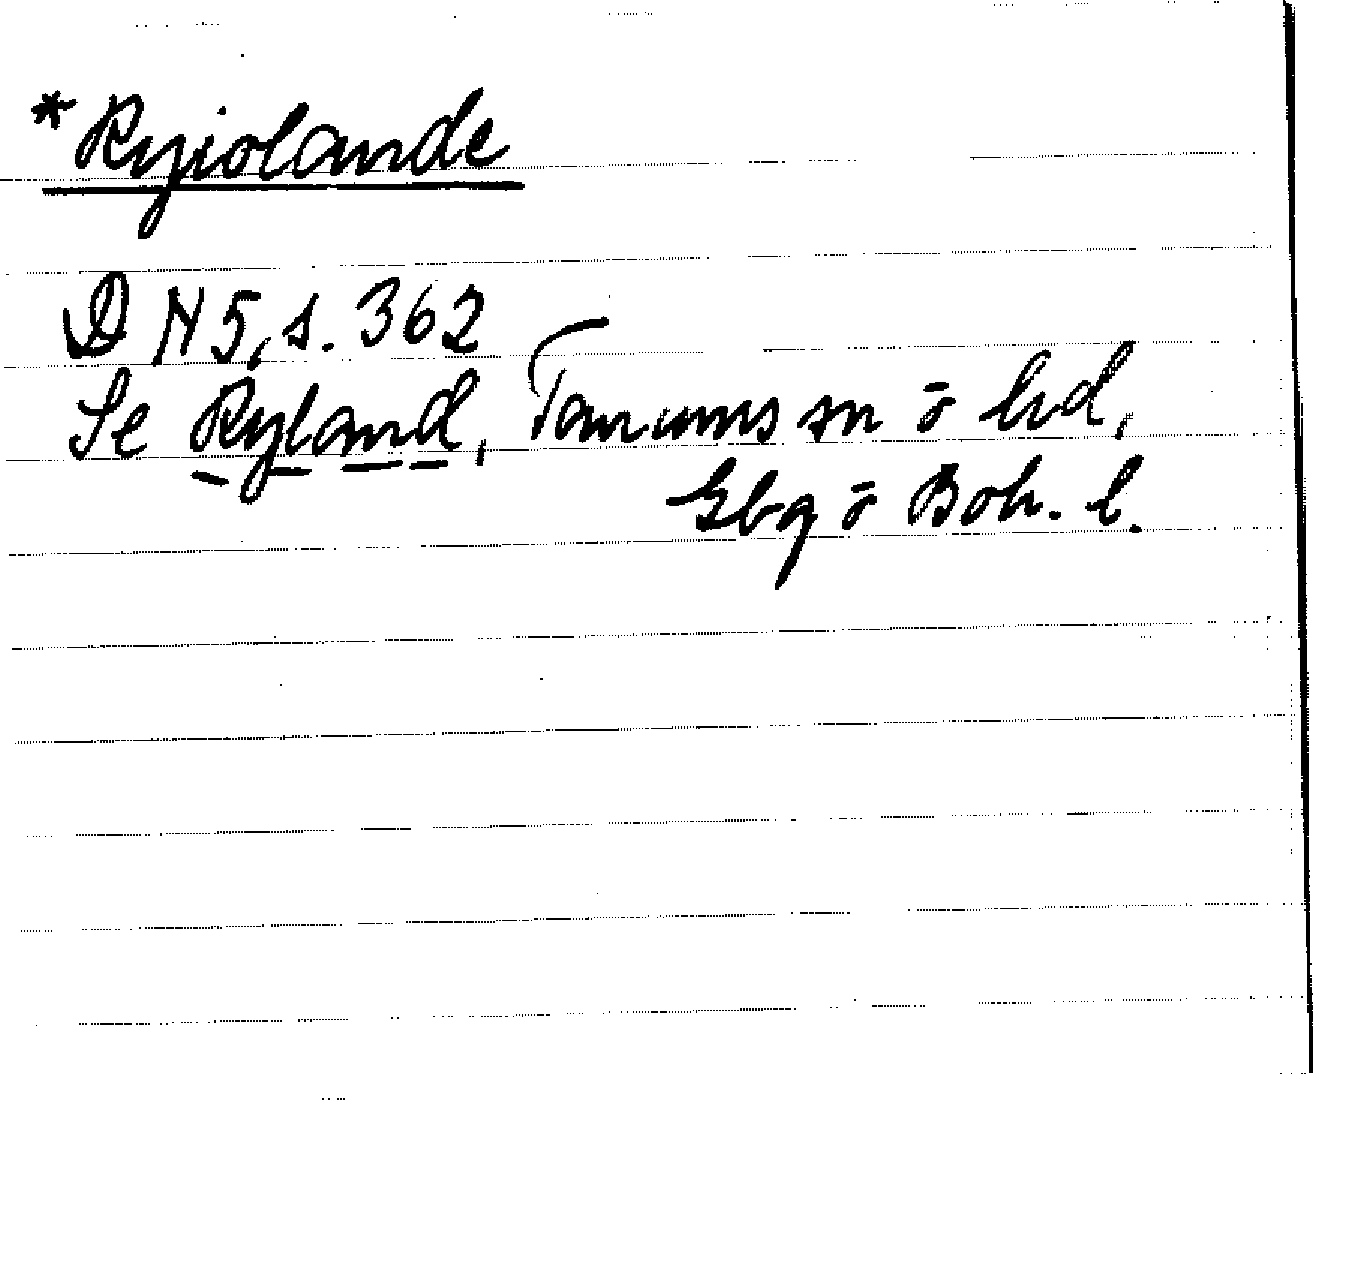 *Ryiolande
DN 5, s. 362
Se Ryland, Tanums sn o hd,
Gbg o Boh. l.